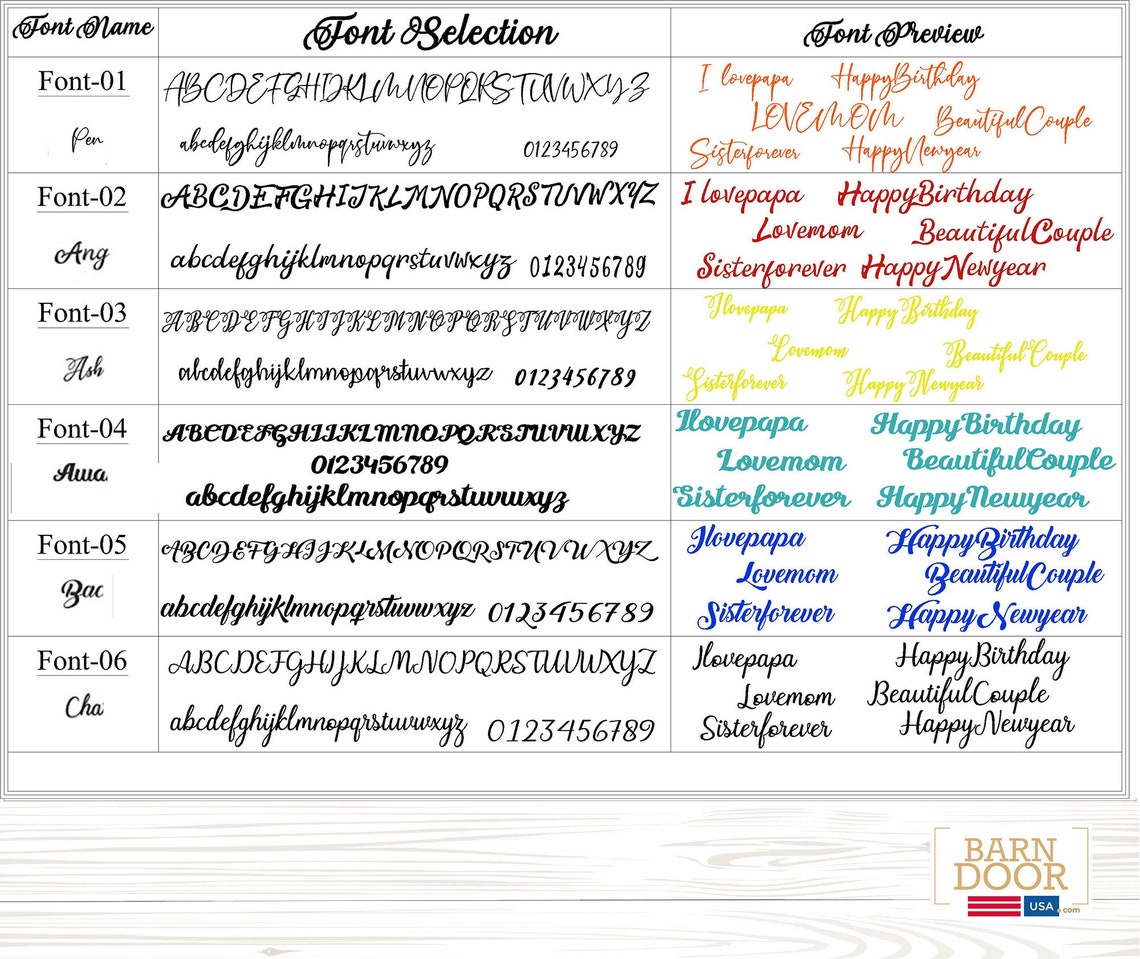 Font Name Font Selection Font Preview
Font-01
Pen
ABCDEFGHIJKLMNOPQRSTUVWXYZ
abcdefghijklmnopqrstuvwxyz 0123456789
I lovepapa HappyBirthday
LOVEMOM BeautifulCouple
Sisterforever HappyNewyear
Font-02
Ang
ABCDEFGHIJKLMNOPQRSTUVWXYZ
abcdefghijklmnopqrstuvwxyz 0123456789
I lovepapa HappyBirthday
Lovemom BeautifulCouple
Sisterforever HappyNewyear
Font-03
Ash
ABCDEFGHIJKLMNOPQRSTUVWXYZ
abcdefghijklmnopqrstuvwxyz 0123456789
Ilovepapa Happy Birthday
Lovemom Beautiful Couple
Sisterforever Happy Newyear
Font-04
Awa
ABCDEFGHIJKLMNOPQRSTUVWXYZ
0123456789
abcdefghijklmnopqrstuvwxyz
Ilovepapa HappyBirthday
Lovemom BeautifulCouple
Sisterforever HappyNewyear
Font-05
Bac
ABCDEFGHIJKLMNOPQRSTUVWXYZ
abcdefghijklmnopqrstuvwxyz 0123456789
Ilovepapa HappyBirthday
Lovemom BeautifulCouple
Sisterforever HappyNewyear
Font-06
Cha
ABCDEFGHIJKLMNOPQRSTUVWXYZ
abcdefghijklmnopqrstuvwxyz 0123456789
Ilovepapa HappyBirthday
Lovemom BeautifulCouple
Sisterforever HappyNewyear
BARN
DOOR
USA.com